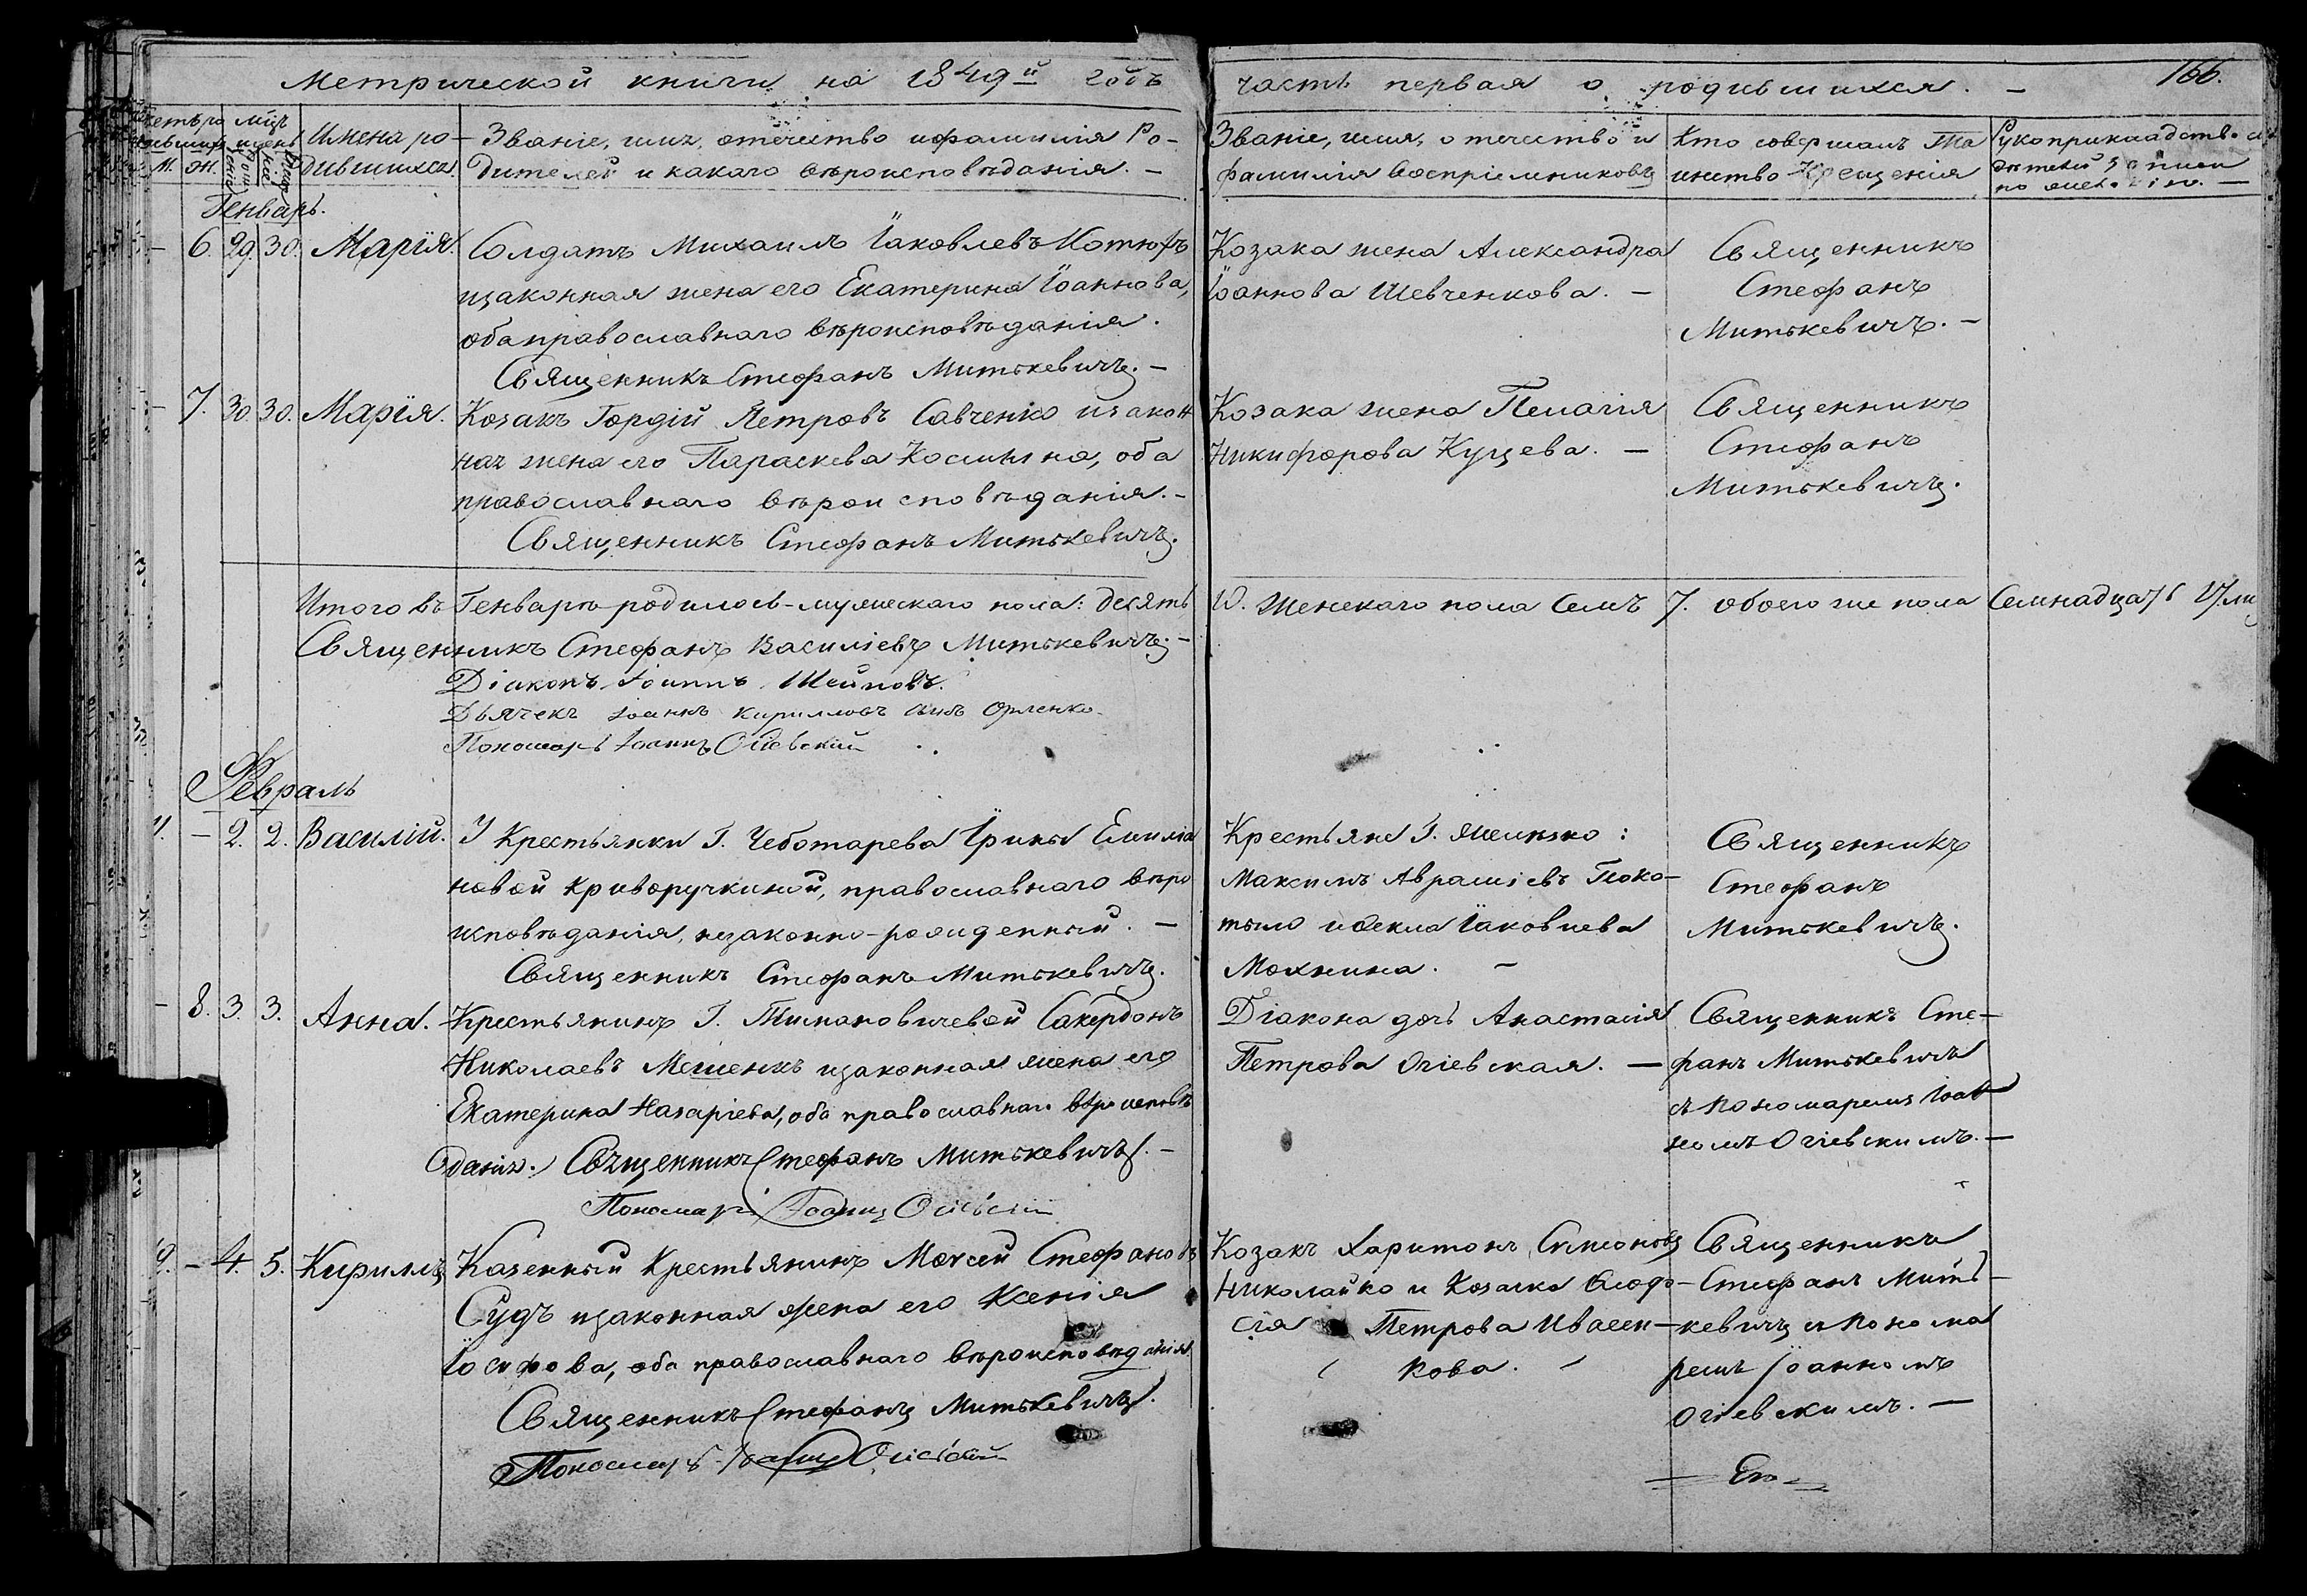 Метрической книги на 1849й годъ
часть первая о родившихся. —
166.
Имена ро-
дившихся.
Званіе, имя, отечество и фамилія Ро-
дителей и какаго вѣроисповѣданія. —
Званіе, имя, отечество и
фамилія воспріемниковъ
Кто совершалъ Та
инство Крещенія
Рукоприкладство
М. Ж.
Генварь.
— 6. 29. 30. Марія.
Солдатъ Михаилъ Іаковлевъ
изаконная жена его Екатерина Іоаннова,
оба православнаго вѣроисповѣданія.
Священникъ Стефанъ Митькевичъ. —
Козака жена Александра
Іоаннова Шевченкова. —
Священникъ
Стефанъ
Митькевичъ. —
— 7. 30. 30. Марія.
Козакъ Гордій Петровъ Савченко изакон
ная жена его Параскева Космина, оба
православнаго вѣроисповѣданія. —
Священникъ Стефанъ Митькевичъ.
Козака жена Пелагія
Никифорова Куцева. —
Священникъ
Стефанъ
Митькевичъ.
Итого въ Генварѣ родилось - мужескаго пола: десять 10. Женскаго пола Семъ 7. обоего же пола Семнадцать 17.
Священникъ Стефанъ Василіевъ Митькевичъ. —
Діаконъ Іоаннъ
Дьячекъ Іоаннъ Кирилловъ сынъ Орленко
Пономарь Іоаннъ Огіевскій
Февраль
— 2. 2. Василій.
У Крестьянки Г. Чеботарева Ірины Емиліа
новой Криворучкиной, православнаго вѣро
исповѣданія, незаконно-рожденный. —
Священникъ Стефанъ Митькевичъ.
Крестьяне Г.
Максимъ Авраміевъ Поко-
тыло и Ѳекла Іаковлева
Мохнина. —
Священникъ
Стефанъ
Митькевичъ.
— 8. 3. 3. Анна.
Крестьянинъ Г. Тимановичевой Сакердонъ
Николаевъ Мешенкъ изаконная жена его
Екатерина Назаріева, оба православнаго вѣроисповѣ
данія. Священникъ Стефанъ Митькевичъ. —
Пономарь Іоаннъ Огіевскій
Діакона дочь Анастасія
Петрова Огіевская. —
Священникъ Сте-
фанъ Митькевичъ
съ Пономаремъ Іоан
номъ Огіевскимъ. —
9. — 4. 5. Кириллъ
Казенный Крестьянинъ Моѵсей Стефановъ
Судъ изаконная жена его Ксенія
Іосифова, оба православнаго вѣроисповѣданія.
Священникъ Стефанъ Митькевичъ.
Пономарь Іоаннъ Огіевскій
Козакъ Харитонъ Симеоновъ
Николайко и Козачка Ѳеодо-
сія Петрова Ивасен-
кова.
Священникъ
Стефанъ Мить-
кевичъ и Понома
ремъ Іоанномъ
Огіевскимъ. —